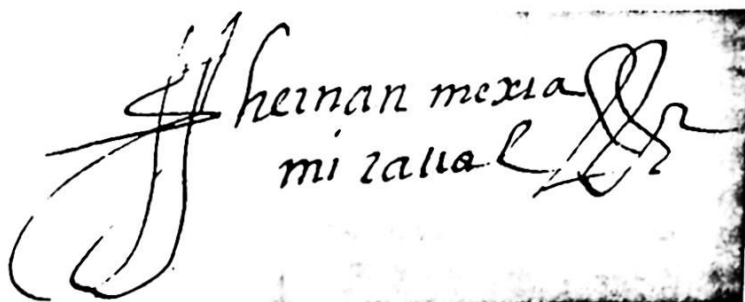 hernan mexia
miraval